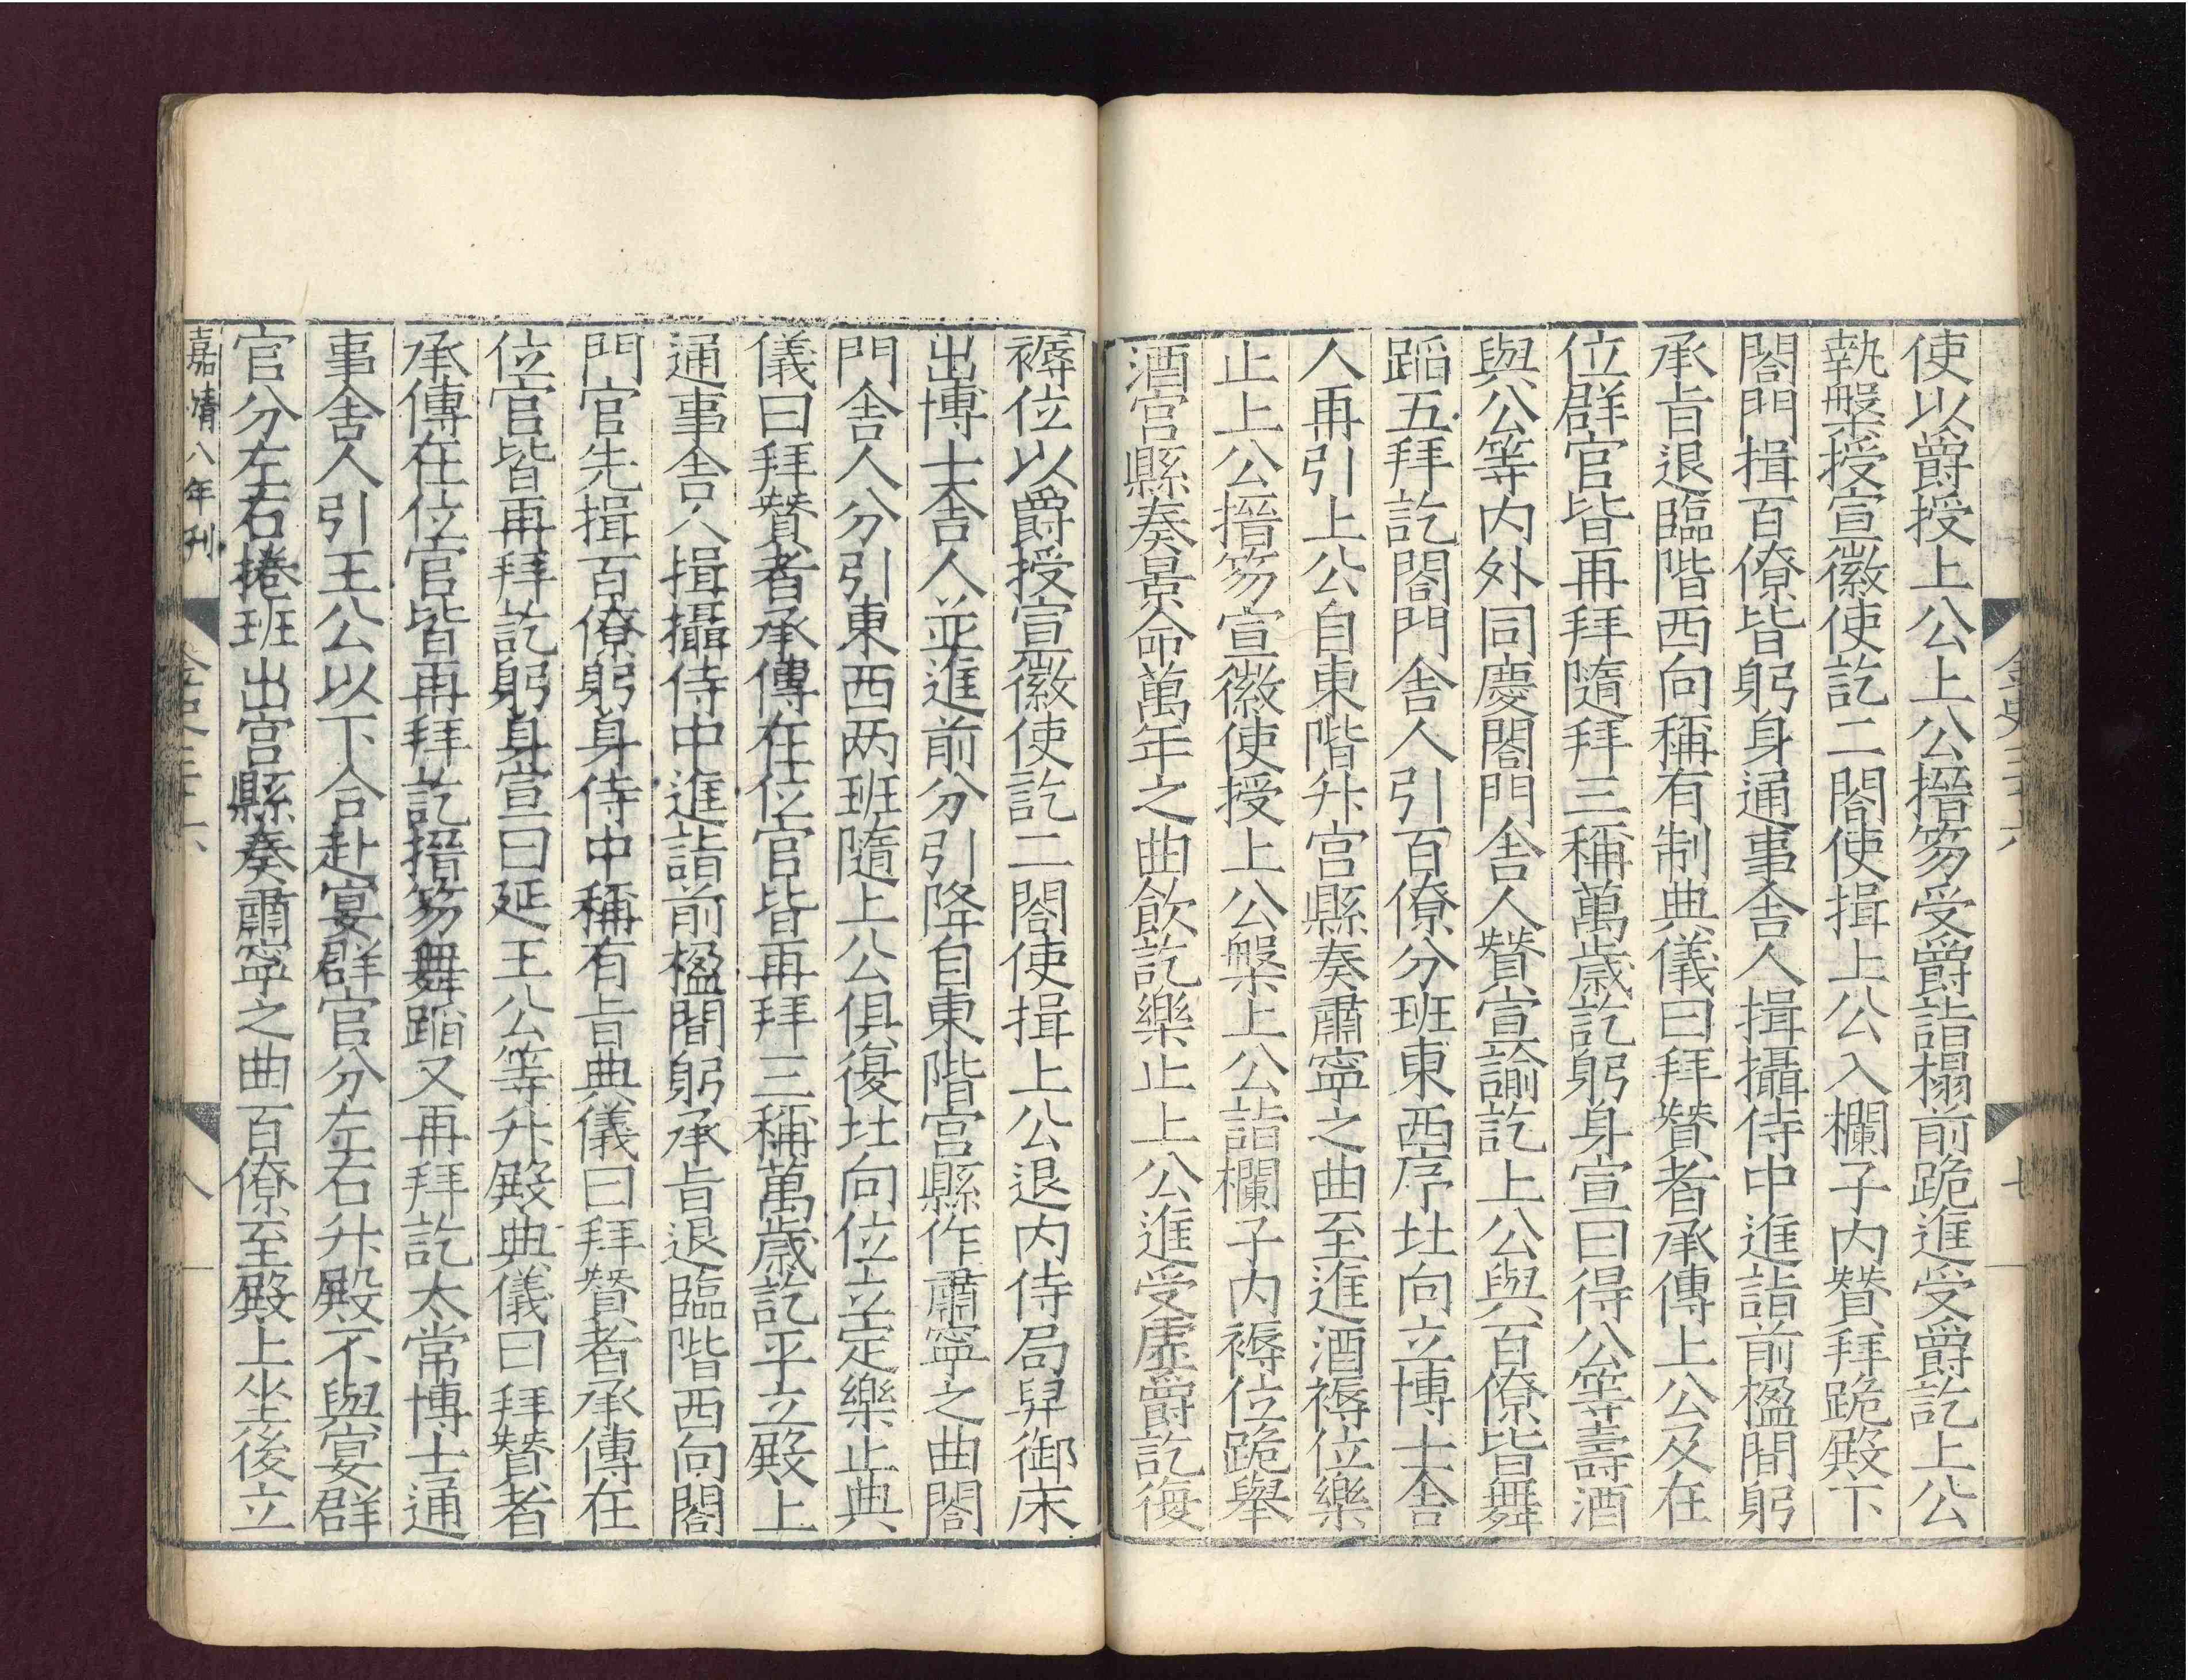 金史三十六
七
使以爵授上公上公搢笏受爵詣榻前跪進受爵訖上公
執槃授宣徽使訖二閤使揖上公入欄子内贊拜跪殿下
閤門揖百僚皆躬身通事舍人揖攝侍中進詣前楹間躬
承旨退臨階西向稱有制典儀曰拜贊者承傳上公及在
位群官皆再拜隨拜三稱萬歲訖躬身宣曰得公等壽酒
與公等内外同慶閤門舍人贊宣諭訖上公與百僚皆舞
蹈五拜訖閤門舍人引百僚分班東西序北向立博士舍
人再引上公自東階升宫縣奏肅寧之曲至進酒褥位樂
止上公搢笏宣徽使授上公槃上公詣欄子内褥位跪舉
酒宫縣奏景命萬年之曲飲訖樂止上公進受虛爵訖復
褥位以爵授宣徽使訖二閤使揖上公退内侍局舁御床
出博士舍人並進前分引降自東階宫縣作肅寧之曲閤
門舍人分引東西两班隨上公俱復北向位立定樂止典
儀曰拜贊者承傳在位官皆再拜三稱萬歲訖平立殿上
通事舍人揖攝侍中進詣前楹間躬承旨退臨階西向閤
門官先揖百僚躬身侍中稱有旨典儀曰拜贊者承傳在
位官皆再拜訖躬身宣曰延王公等升殿典儀曰拜贊者
承傳在位官皆再拜訖搢笏舞蹈又再拜訖太常博士通
事舍人引王公以下合赴宴群官分左右升殿不與宴群
官分左右捲班出宫縣奏肅寧之曲百僚至殿上坐後立
嘉靖八年刊
金史三十六
八